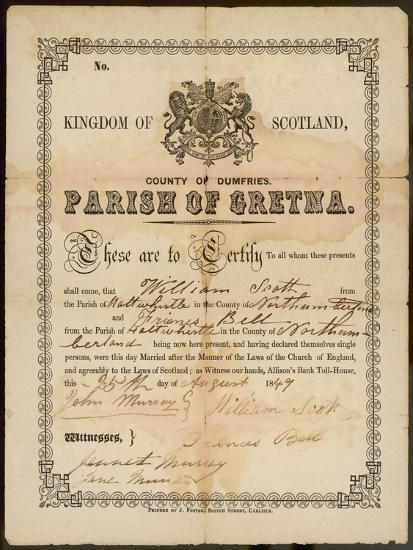 No.
KINGDOM OF SCOTLAND,
COUNTY OF DUMFRIES.
PARISH OF GRETNA.
These are to Certify To all whom these presents
shall come, that William Scott from
the Parish of Haltwhistle in the County of Northumberland
and Frances Bell
from the Parish of Haltwhistle in the County of Northum-
berland being now here present, and having declared themselves single
persons, were this day Married after the Manner of the Laws of the Church of England,
and agreeably to the Laws of Scotland; as Witness our hands, Allison's Bank Toll-House,
this 25th day of August 1849
John Murray William Scott
Witnesses, } Frances Bell
Jannet Murray
Jane Murray
PRINTED BY J. FOSTER, SCOTCH STREET, CARLISLE.